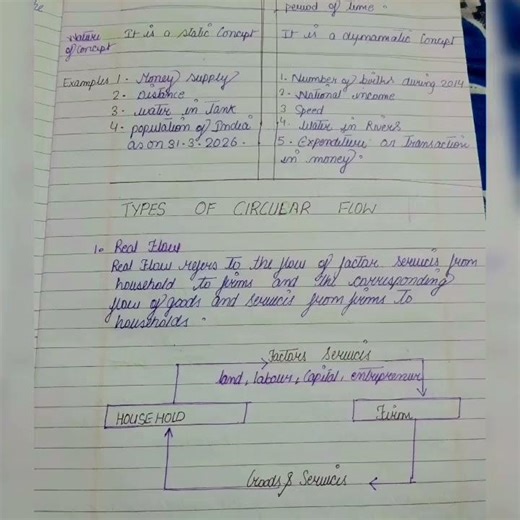 period of time.
Nature of Concept
It is a static Concept
It is a dynamatic Concept
Examples
1. Money supply
2. Distance
3. water in tank
4. population of India
as on 31.3.2026.
1. Number of births during 2014
2. National income
3 Speed
4. Water in Rivers
5. Expenditure or Transaction
in money.
TYPES OF CIRCULAR FLOW
1. Real Flow
Real Flow refers to the flow of factor services from
household to firms and the corresponding
flow of goods and services from firms to
households.
Factors Services
land, labour, Capital, entrepreneur
HOUSEHOLD
Firm
Goods & Services